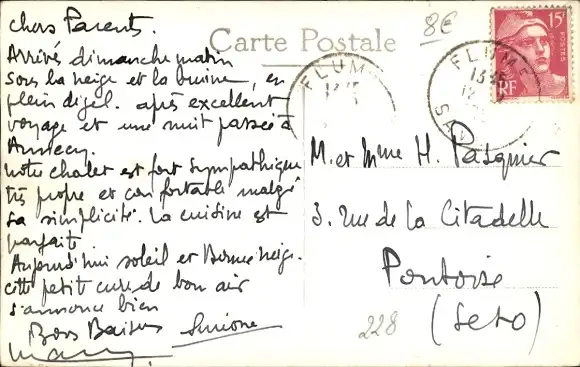 chers Parents.
Arrivés dimanche matin
sous la neige et la bruine, en
plein dégel. après excellent
voyage et une nuit passée à
Annecy.
notre chalet est fort sympathique
très propre et confortable malgré
sa simplicité. La cuisine est
parfait
Aujourd'hui soleil et Bonne neige.
cette petit cure de bon air
s'annonce bien
Bons Baisers Simone
Carte Postale
8€
15F
POSTES
RF
FLUME
13 45
FLUME
13 45
M. et Mme H. Pasquier
3. Rue de la Citadelle
Pontoise
(Seto)
228